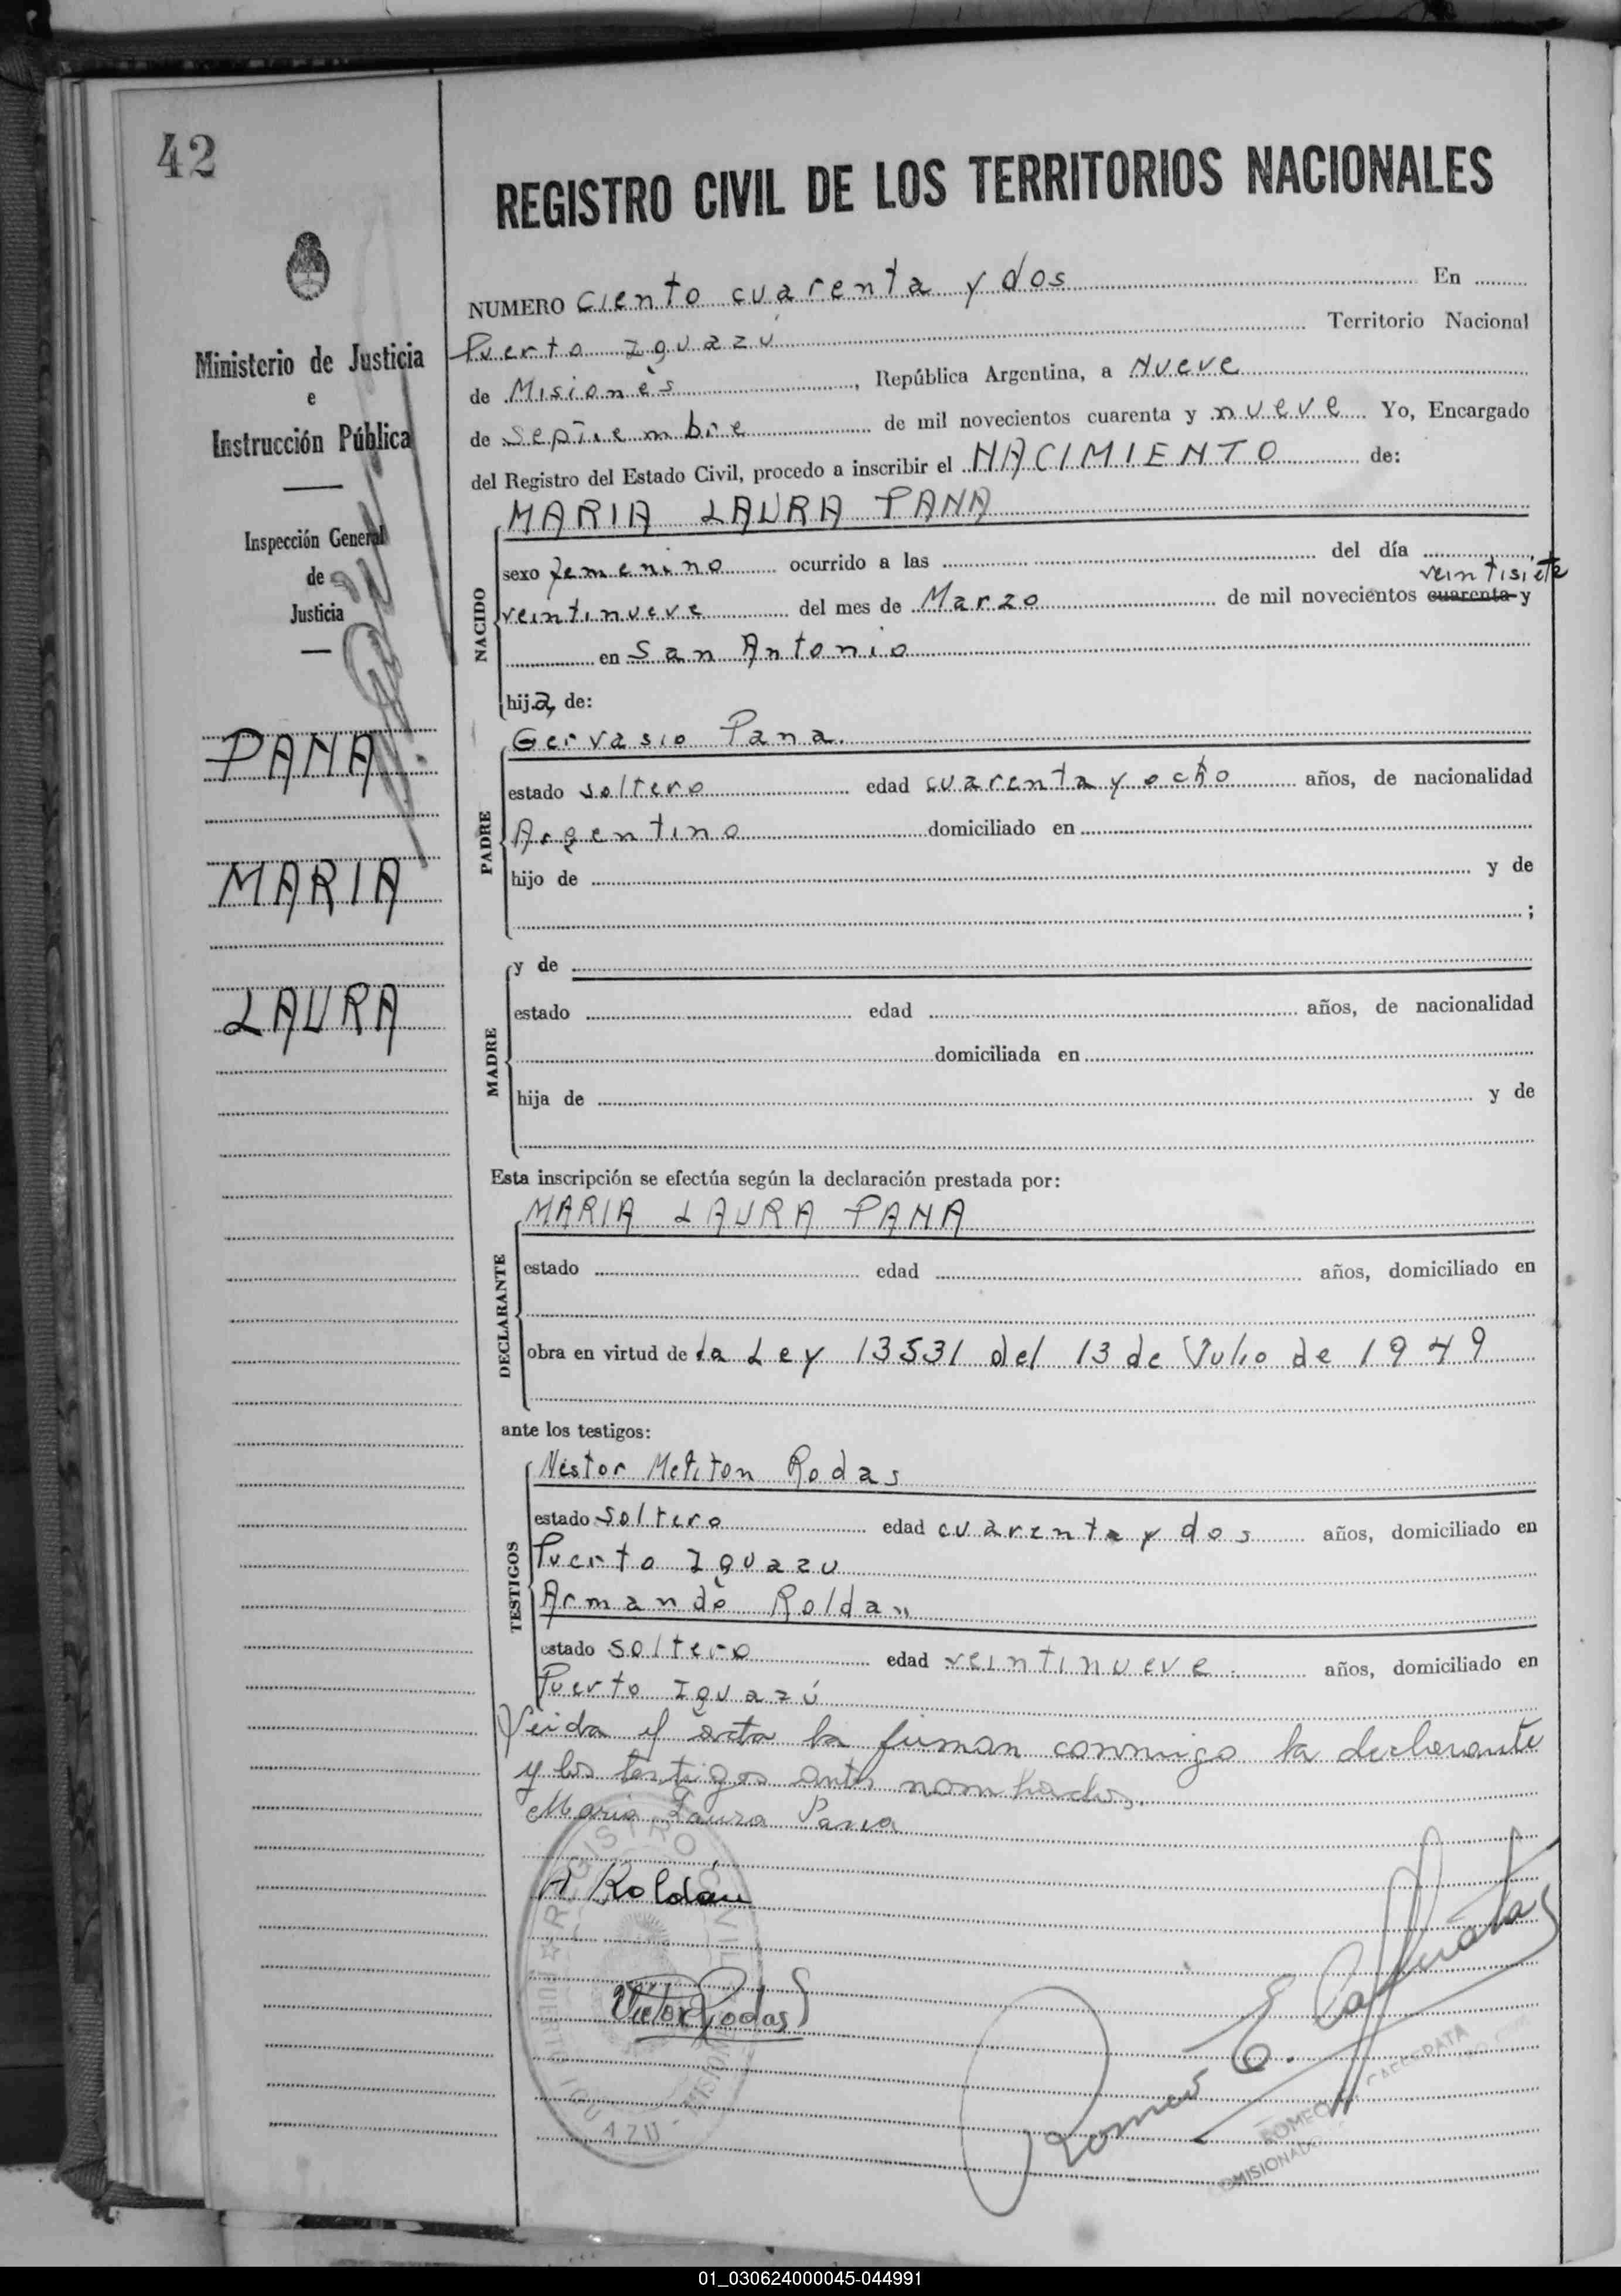 42
REGISTRO CIVIL DE LOS TERRITORIOS NACIONALES
NUMERO Ciento cuarenta y dos En
Puerto Iguazú Territorio Nacional
de Misiones, República Argentina, a Nueve
de Septiembre de mil novecientos cuarenta y nueve Yo, Encargado
del Registro del Estado Civil, procedo a inscribir el NACIMIENTO de:
Ministerio de Justicia
e
Instrucción Pública
Inspección General
de
Justicia
PANA
MARIA
LAURA
NACIDO
MARIA LAURA PANA
sexo femenino ocurrido a las del día
veintisiete
veintinueve del mes de Marzo de mil novecientos cuarenta y
en San Antonio
hija de:
PADRE
Gervasio Pana.
estado soltero edad cuarenta y ocho años, de nacionalidad
Argentino domiciliado en
hijo de y de
;
MADRE
y de
estado edad años, de nacionalidad
domiciliada en
hija de y de
Esta inscripción se efectúa según la declaración prestada por:
DECLARANTE
MARIA LAURA PANA
estado edad años, domiciliado en
obra en virtud de la Ley 13531 del 13 de Julio de 1949
ante los testigos:
TESTIGOS
Nestor Meliton Rodas
estado soltero edad cuarenta y dos años, domiciliado en
Puerto Iguazu
Armando Roldan
estado soltero edad veintinueve años, domiciliado en
Puerto Iguazú
Leida el acta la firman conmigo la declarante
y los testigos antes nombrados.
Maria Laura Pana
A Roldán
Rodas
Romeo E.
REGISTRO CIVIL
PUERTO IGUAZU - MISIONES
01_030624000045-044991